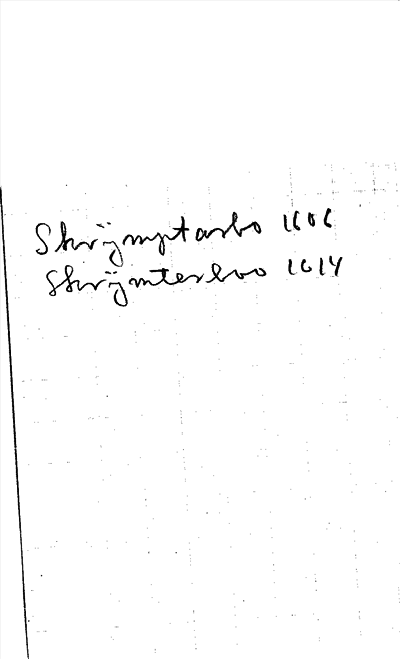 Skrÿmptarbo 1606
Skrÿmterboo 1614